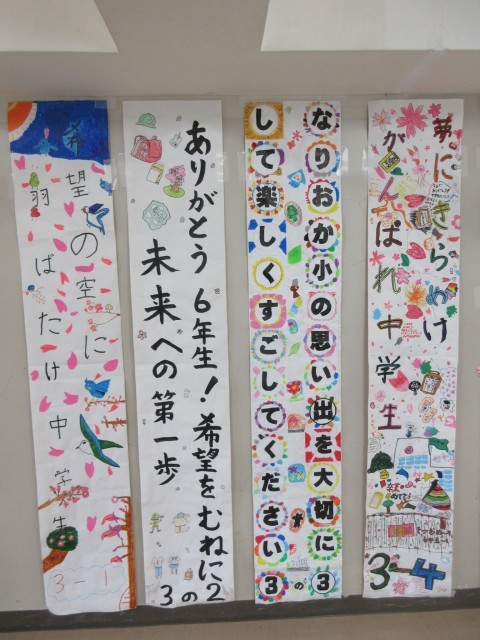 希望の空に
羽ばたけ中学生
3-1
ありがとう 6年生!希望をむねに
未来への第一歩
3の2
なりおか小の思い出を大切に
して楽しくすごしてください
3の3
夢にきらめけ
がんばれ中学生
3-4